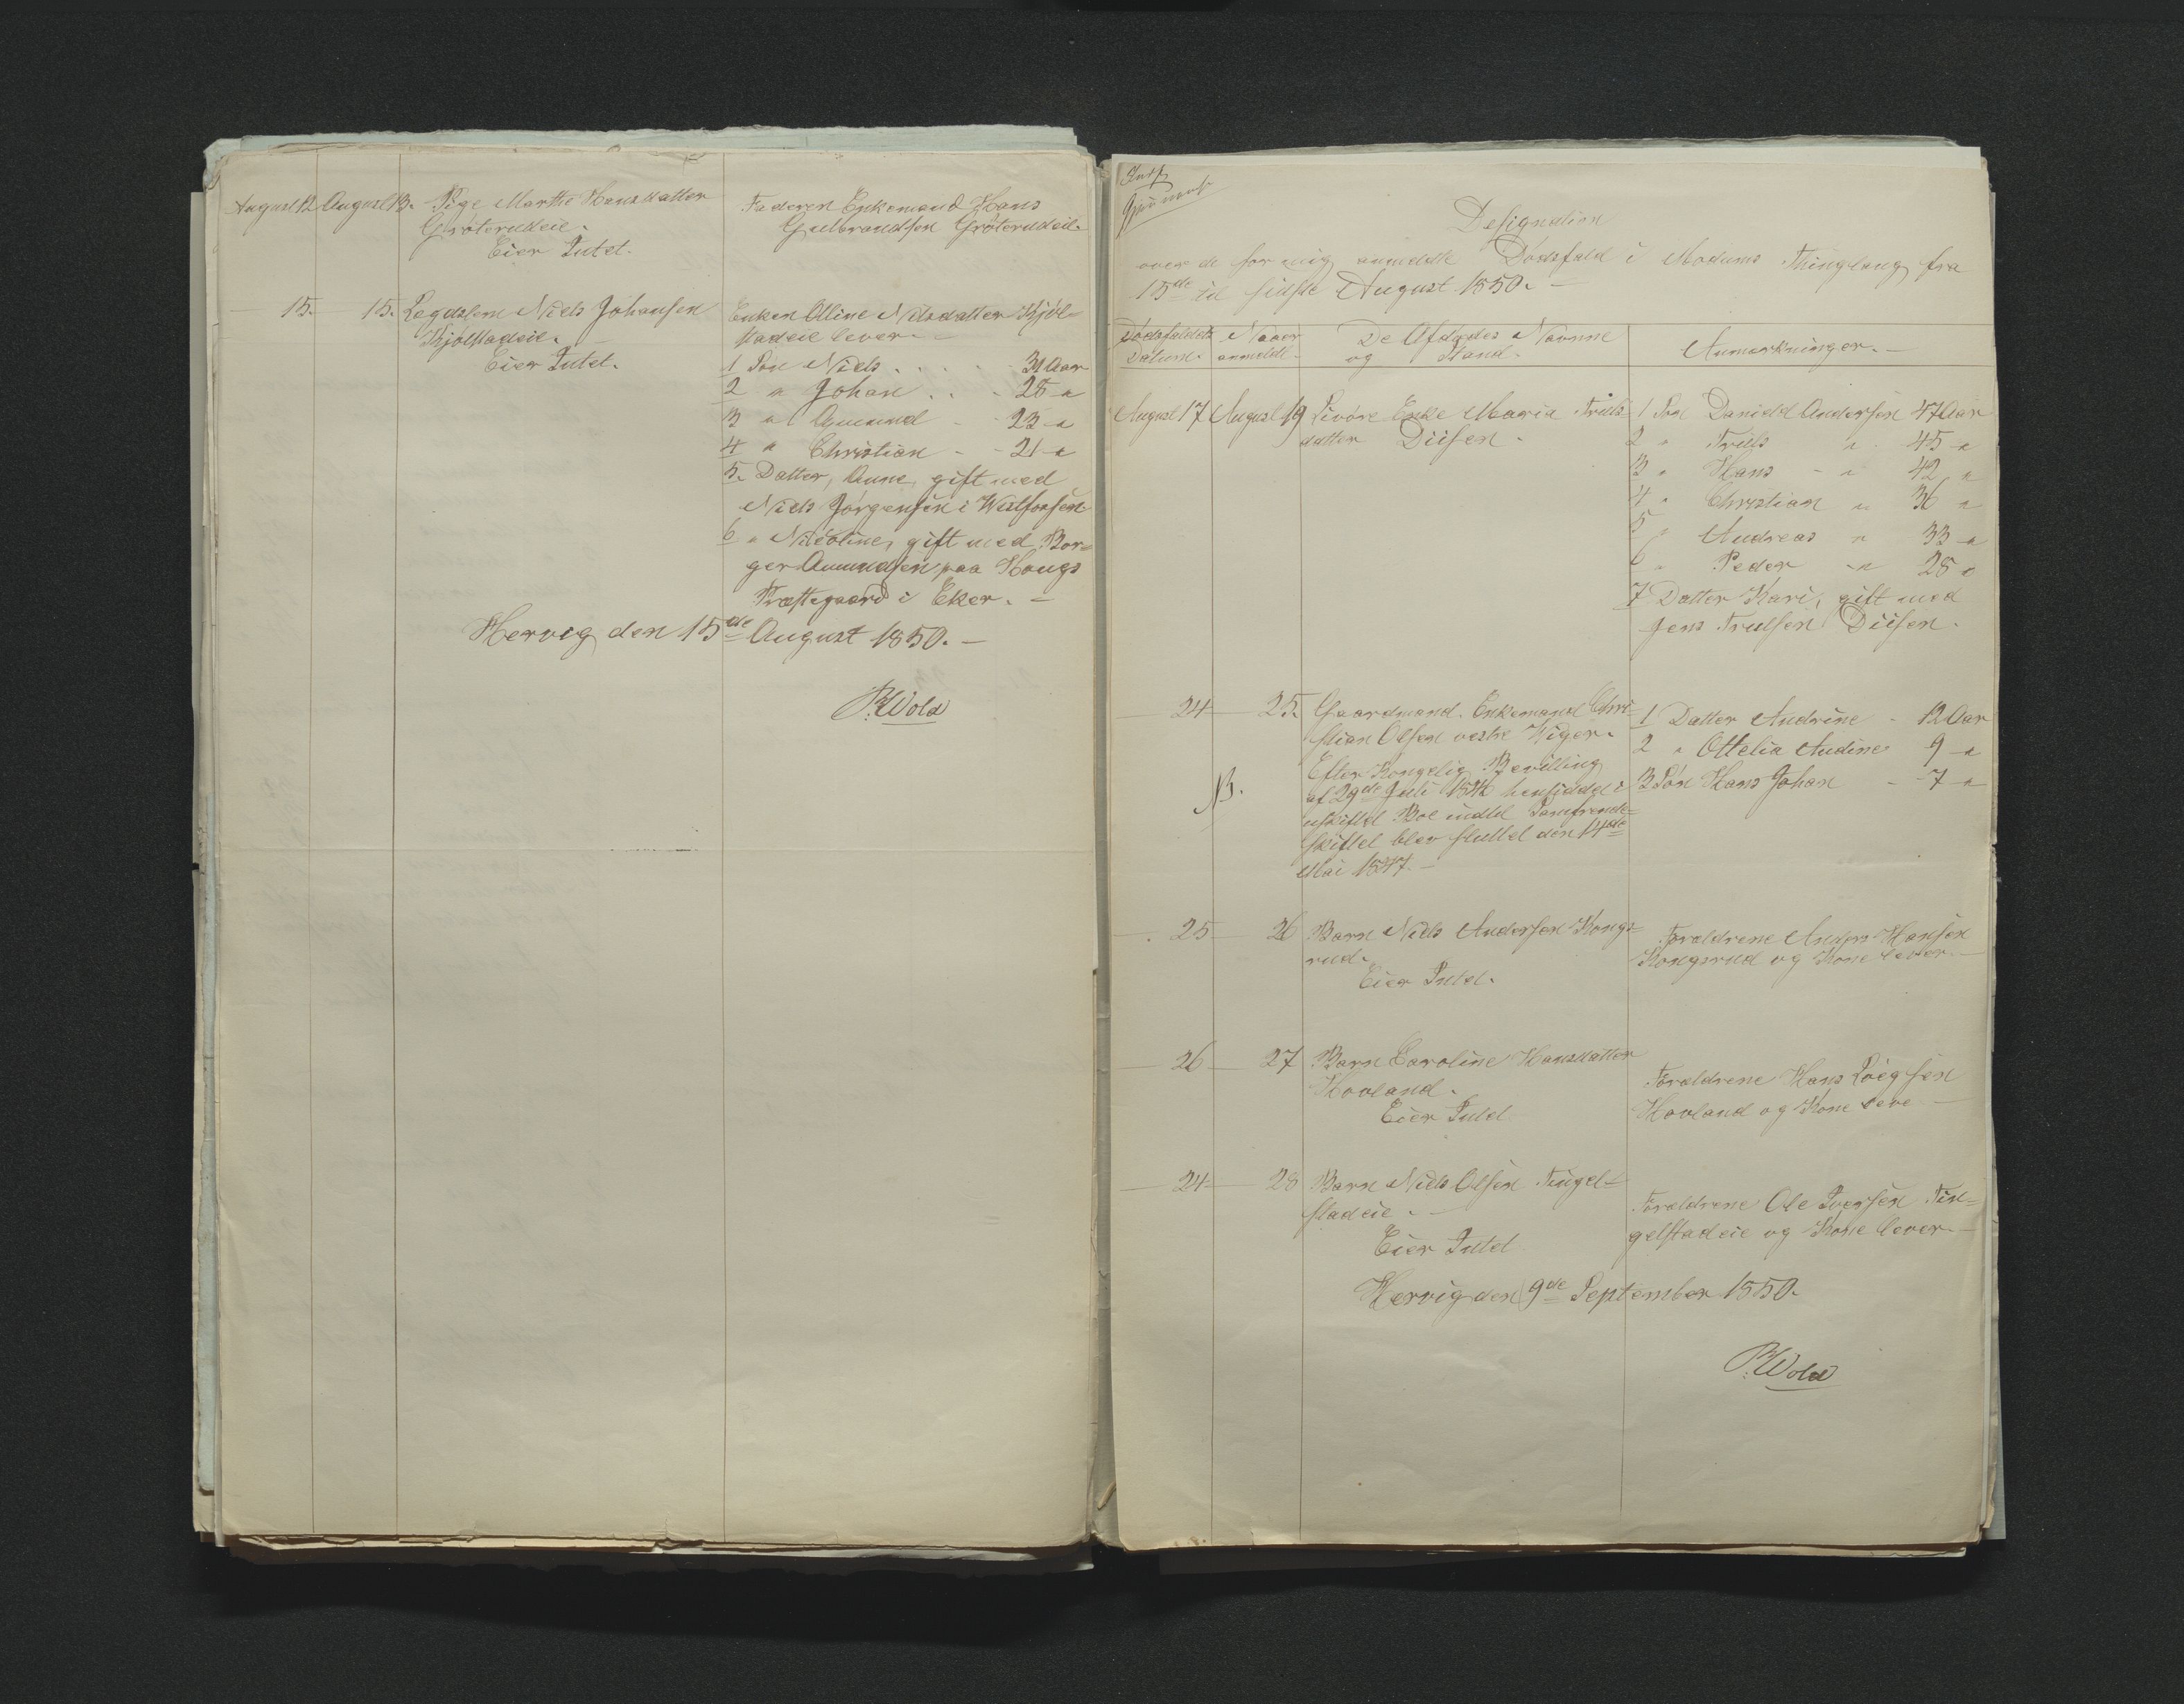 August 12 August 13. Pige Marthe Hansdatter
Gröterudeie.
Eier Intet.
Faderen Enkemand Hans
Gulbrandsen Gröterudeie.
15. 15. Lægdslem Niels Johansen
Kjölstadeie.
Eier Intet.
Enken Oline Nilsdatter Kjöl-
stadeie lever.
1 Sön Niels . . . . 31 Aar
2 " Johan . . . 28 "
3 " Amund - 23 "
4 " Christian - - 21 "
5. Datter, Anne, gift med
Niels Jörgensen i Westfossen
6 " Nicoline, gift med Bor-
ger Amundsen paa Hougs
Præstegaard i Eker. -
Hervig den 15de August 1850. -
P. Wold
Designation
over de for mig anmeldte Dödsfald i Modums Thinglaug fra
15de til sidste August 1850. -
Dödsfaldets Datum.
Naar anmeldt.
De Afdödes Navne
og Stand.
Anmærkninger. -
August 17 August 19 Livöre Enke Maria Truls-
datter Diisen.
1 Sön Daniel Andersen 47 Aar
2 " Truls " 45 "
3 " Hans - " 42 "
4 " Christian " 36 "
5 " Andreas " 33 "
6 " Peder " 28 "
7 Datter Kari, gift med
Jens Trulsen Diisen.
24 25. Gaardmand. Enkemand Chri-
stian Olsen vestre Wiger.
Efter Kongelig Bevilling
af 29de Juli hensiddet i
uskiftet Boe indtil Samfrænde-
skiftet blev sluttet den 14de
Mai 1847. -
NB.
1 Datter Andrine - 12 Aar
2 " Ottelia Audine 9 "
3 Sön Hans Johan - 7 "
25 26 Barn Niels Andersen Kongs-
rud.
Eier Intet.
Forældrene Anders Hansen
Kongsrud og Kone lever. -
26 27 Barn Caroline Hansdatter
Hovland.
Eier Intet
Forældrene Hans
Hovland og Kone leve -
24 28 Barn Niels Olsen Tingel-
stadeie. -
Eier Intet
Forældrene Ole Iversen Tin-
gelstadeie og Kone lever. -
Hervig den 9de September 1850.
P. Wold